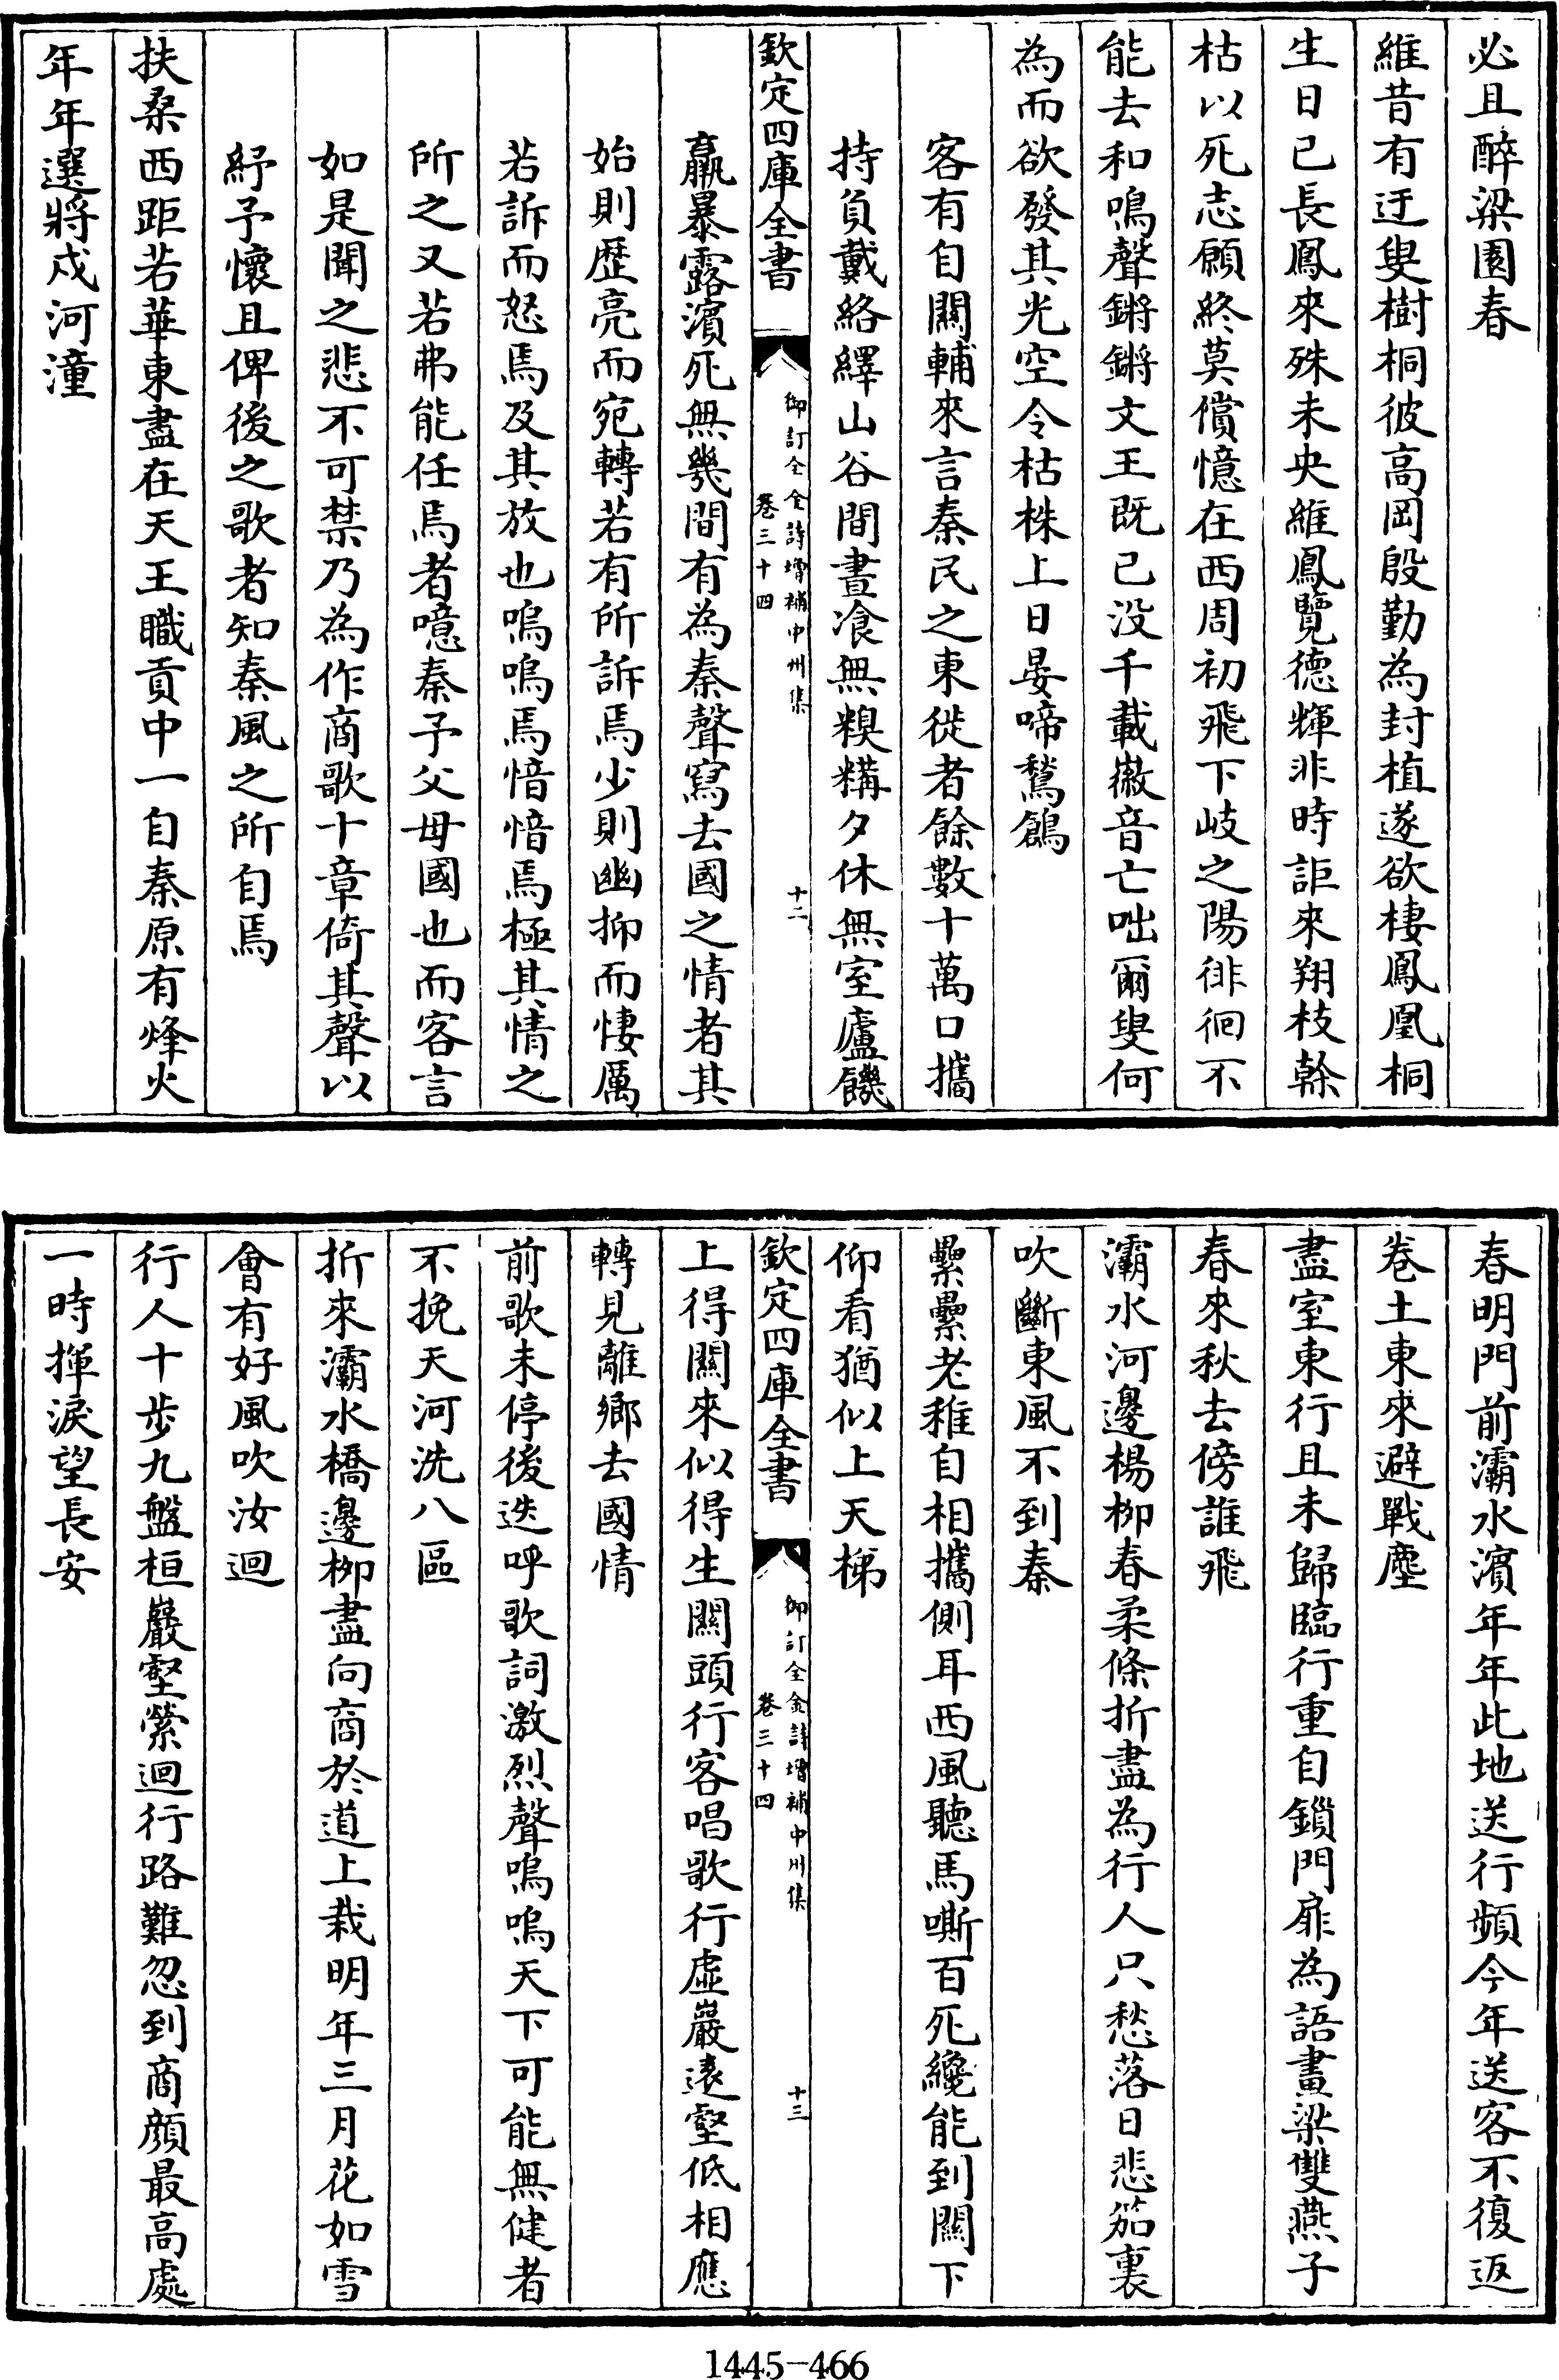 必且醉梁園春
維昔有迂叟樹桐彼高岡殷勤為封植遂欲棲鳳凰桐
生日已長鳳來殊未央維鳳覽德輝非時詎來翔枝榦
枯以死志願終莫償憶在西周初飛下岐之陽徘徊不
能去和鳴聲鏘鏘文王既已没千載徽音亡咄爾叟何
為而欲發其光空令枯株上日晏啼鶖鶬
客有自關輔來言秦民之東徙者餘數十萬口攜
持負戴絡繹山谷間晝飡無糗糒夕休無室廬饑
欽定四庫全書
御訂全金詩増補中州集
卷三十四
十二
羸暴露濵死無幾間有為秦聲寫去國之情者其
始則歴亮而宛轉若有所訴焉少則幽抑而悽厲
若訴而怒焉及其放也嗚嗚焉愔愔焉極其情之
所之又若弗能任焉者噫秦予父母國也而客言
如是聞之悲不可禁乃為作商歌十章倚其聲以
紓予懷且俾後之歌者知秦風之所自焉
扶桑西距若華東盡在天王職貢中一自秦原有烽火
年年選將戍河潼
春明門前灞水濱年年此地送行頻今年送客不復返
卷土東來避戰塵
盡室東行且未歸臨行重自鎖門扉為語畫梁雙燕子
春來秋去傍誰飛
灞水河邊楊柳春柔條折盡為行人只愁落日悲笳裏
吹斷東風不到秦
纍纍老稚自相攜側耳西風聽馬嘶百死纔能到關下
仰看猶似上天梯
欽定四庫全書
御訂全金詩増補中州集
卷三十四
十三
上得關來似得生關頭行客唱歌行虛巖遠壑低相應
轉見離鄉去國情
前歌未停後迭呼歌詞激烈聲嗚嗚天下可能無健者
不挽天河洗八區
折來灞水橋邊柳盡向商於道上栽明年三月花如雪
會有好風吹汝迴
行人十步九盤桓巖壑縈迴行路難忽到商顔最高處
一時揮淚望長安
1445-466